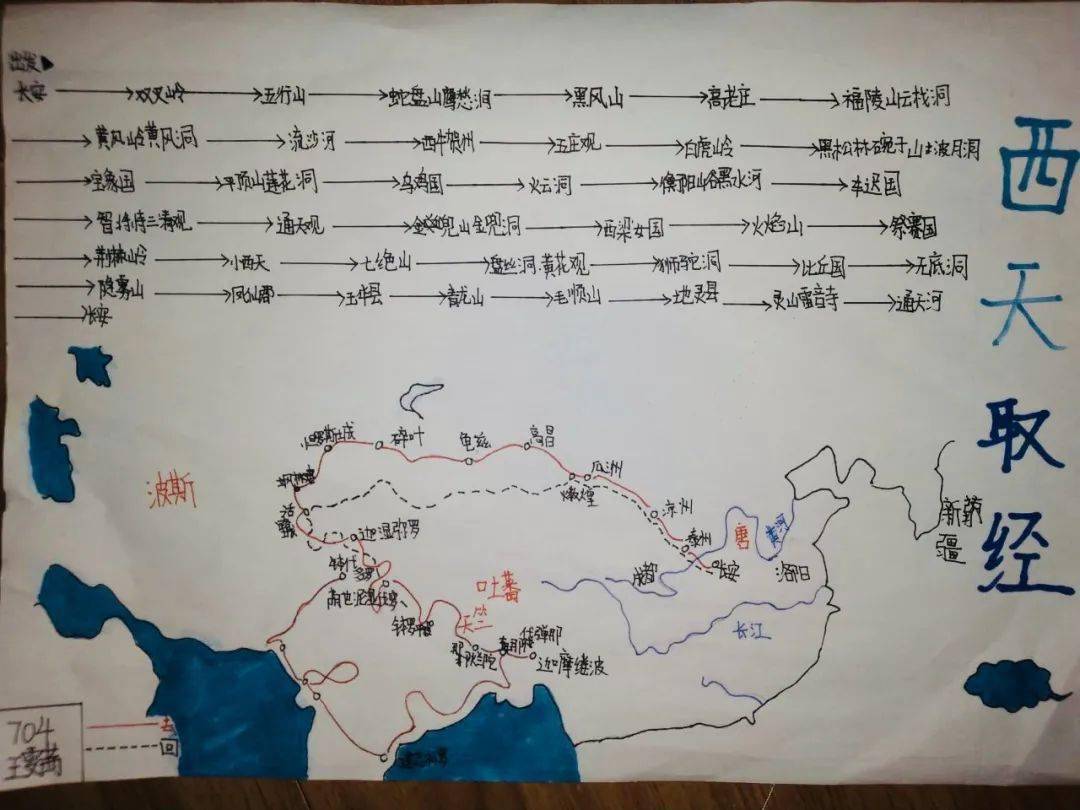 出发
长安 双叉岭 五行山 蛇盘山鹰愁涧 黑风山 高老庄 福陵山云栈洞
黄风岭黄风洞 流沙河 西牛贺州 五庄观 白虎岭 黑松林碗子山波月洞
宝象国 平顶山莲花洞 乌鸡国 火云洞 衡阳山谷黑水河 车迟国
三清观 通天观 金兜山金兜洞 西梁女国 火焰山 祭赛国
荆棘岭 小西天 七绝山 盘丝洞黄花观 狮驼洞 比丘国 无底洞
隐雾山 凤仙郡 玉华县 青龙山 毛颖山 地灵县 灵山雷音寺 通天河
长安
西天取经
碎叶
龟兹
高昌
瓜洲
敦煌
凉州
秦州
长安
洛阳
成都
唐
黄河
长江
新疆
波斯
活国
迦湿弥罗
吐蕃
天竺
迦摩缕波
704
去
回